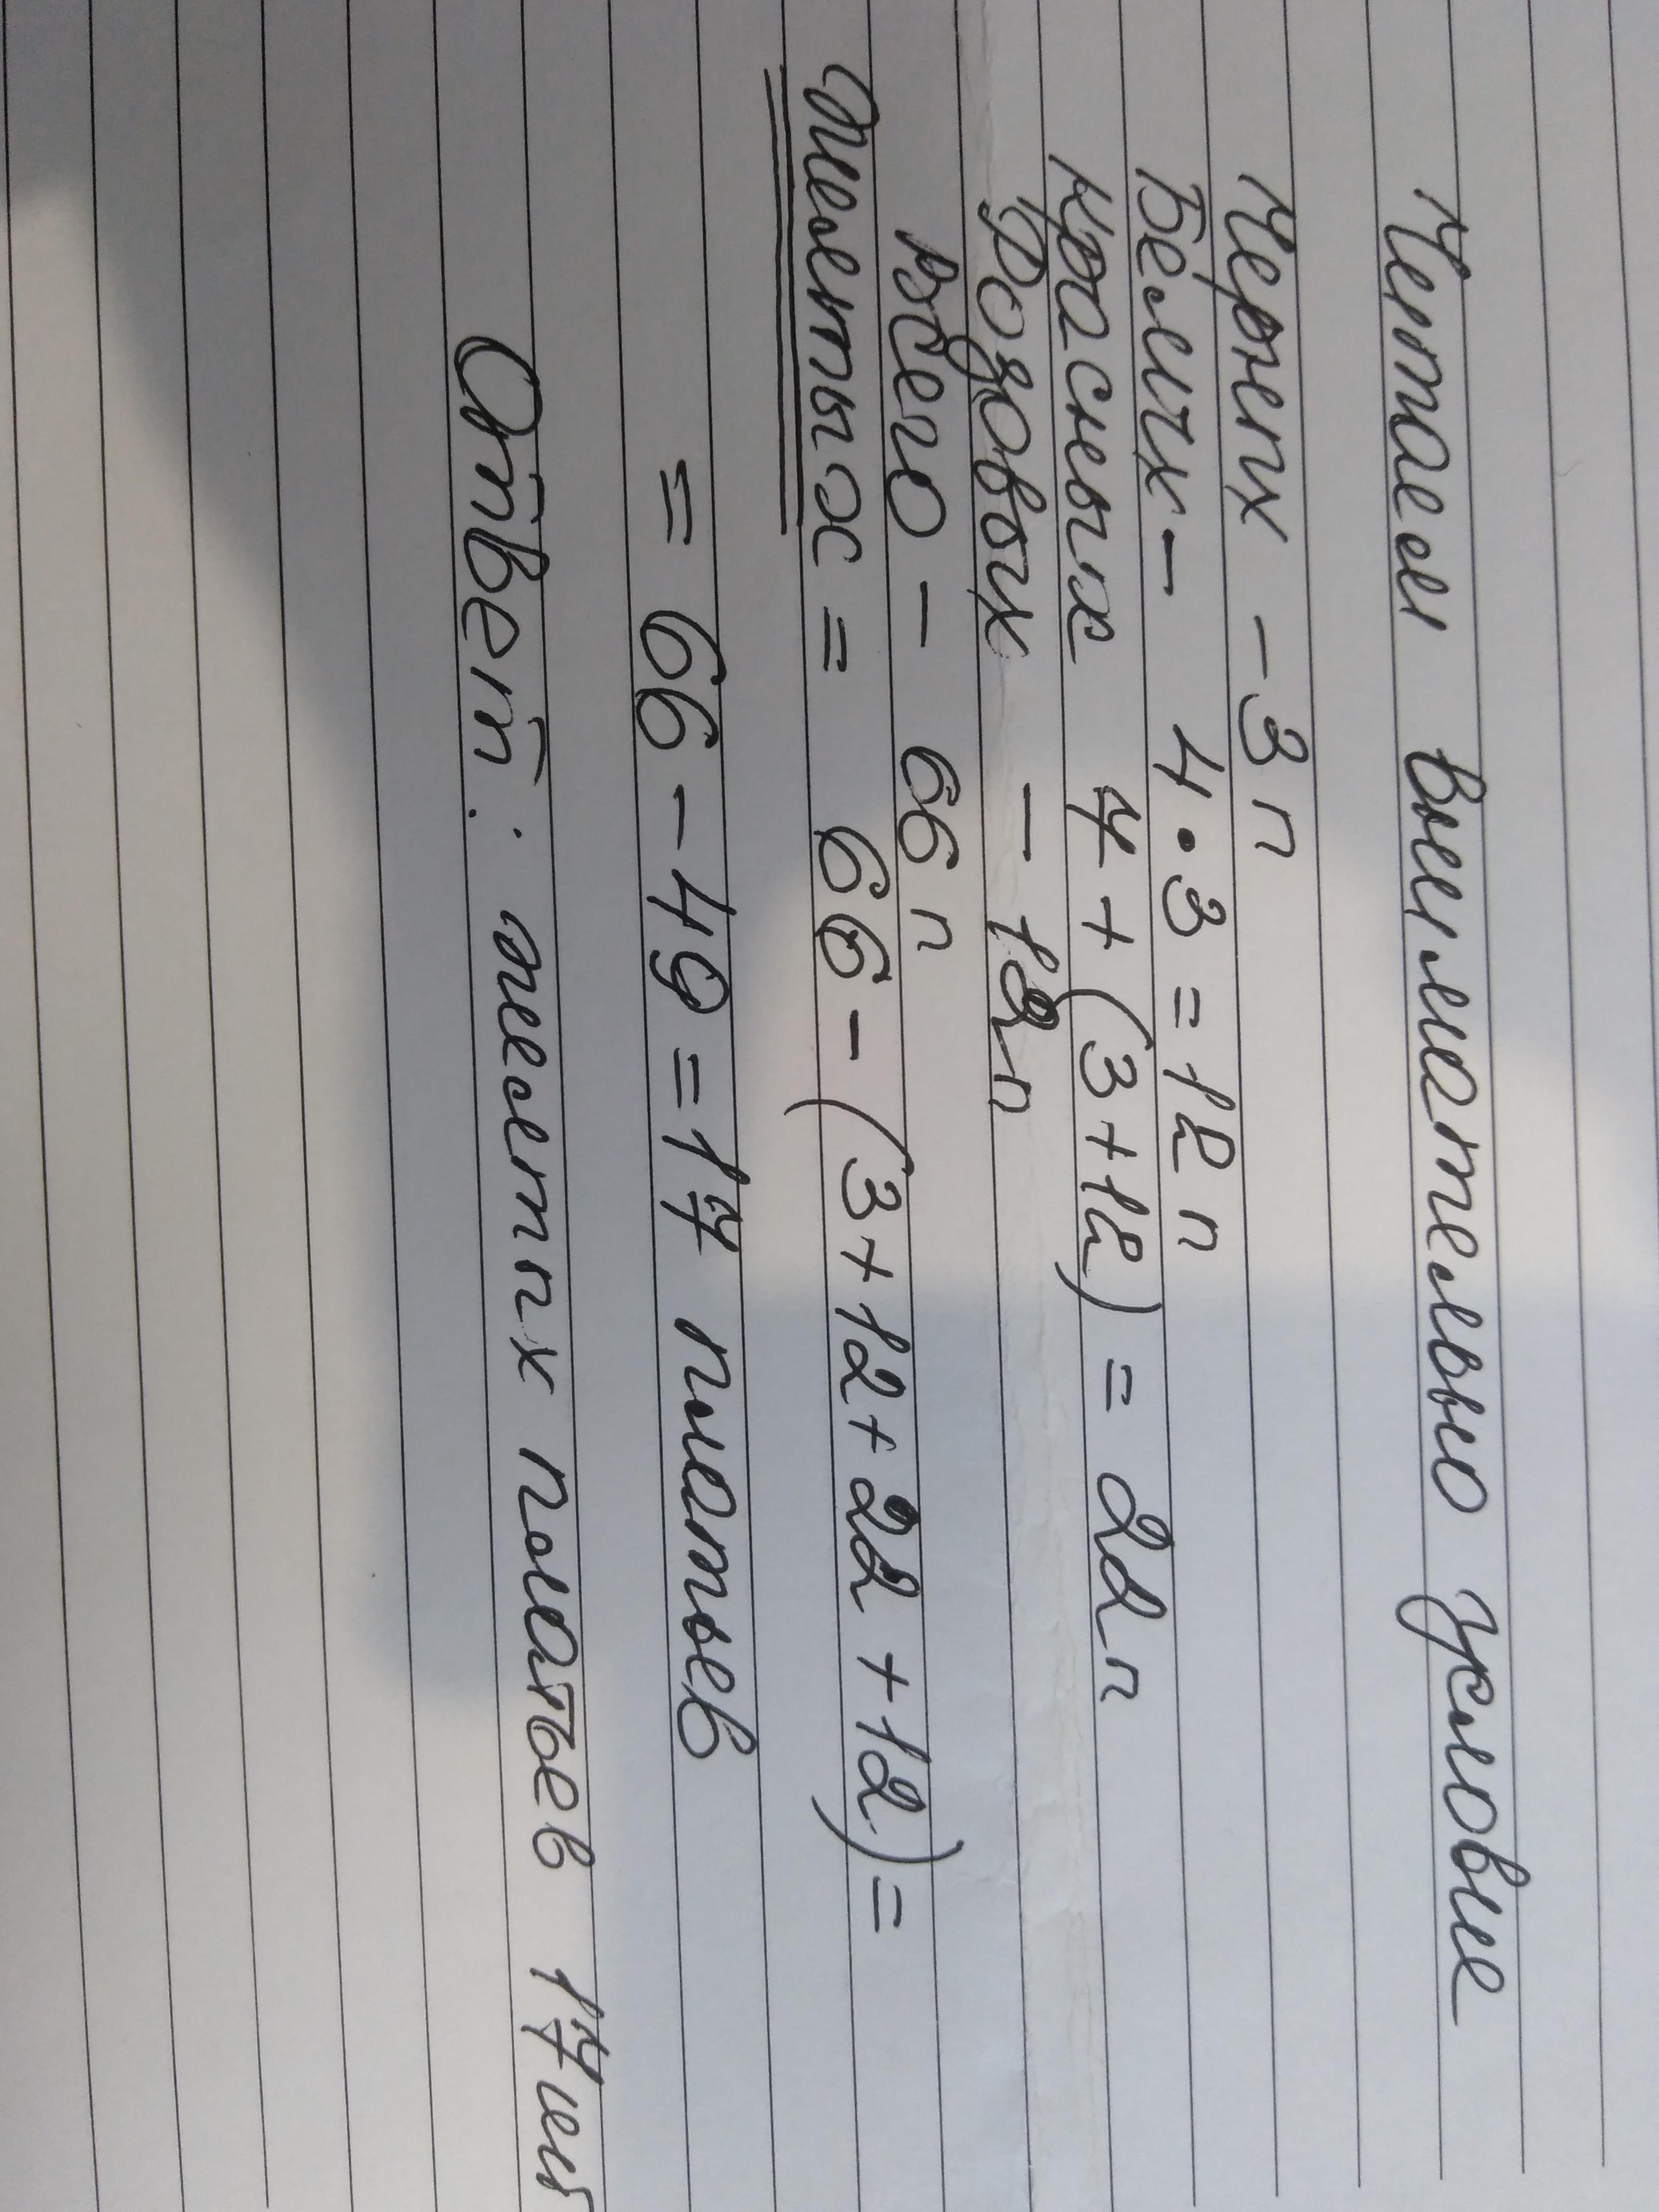 Читаем внимательно условие
Черных - 3 п
Белых - 4 · 3 = 12 п
Красных 7 + (3 + 12) = 22 п
Розовых - 12 п
всего - 66 п
Желтых = 66 - (3 + 12 + 22 + 12) =
= 66 - 49 = 17 платьев
Ответ: желтых платьев 17 шт